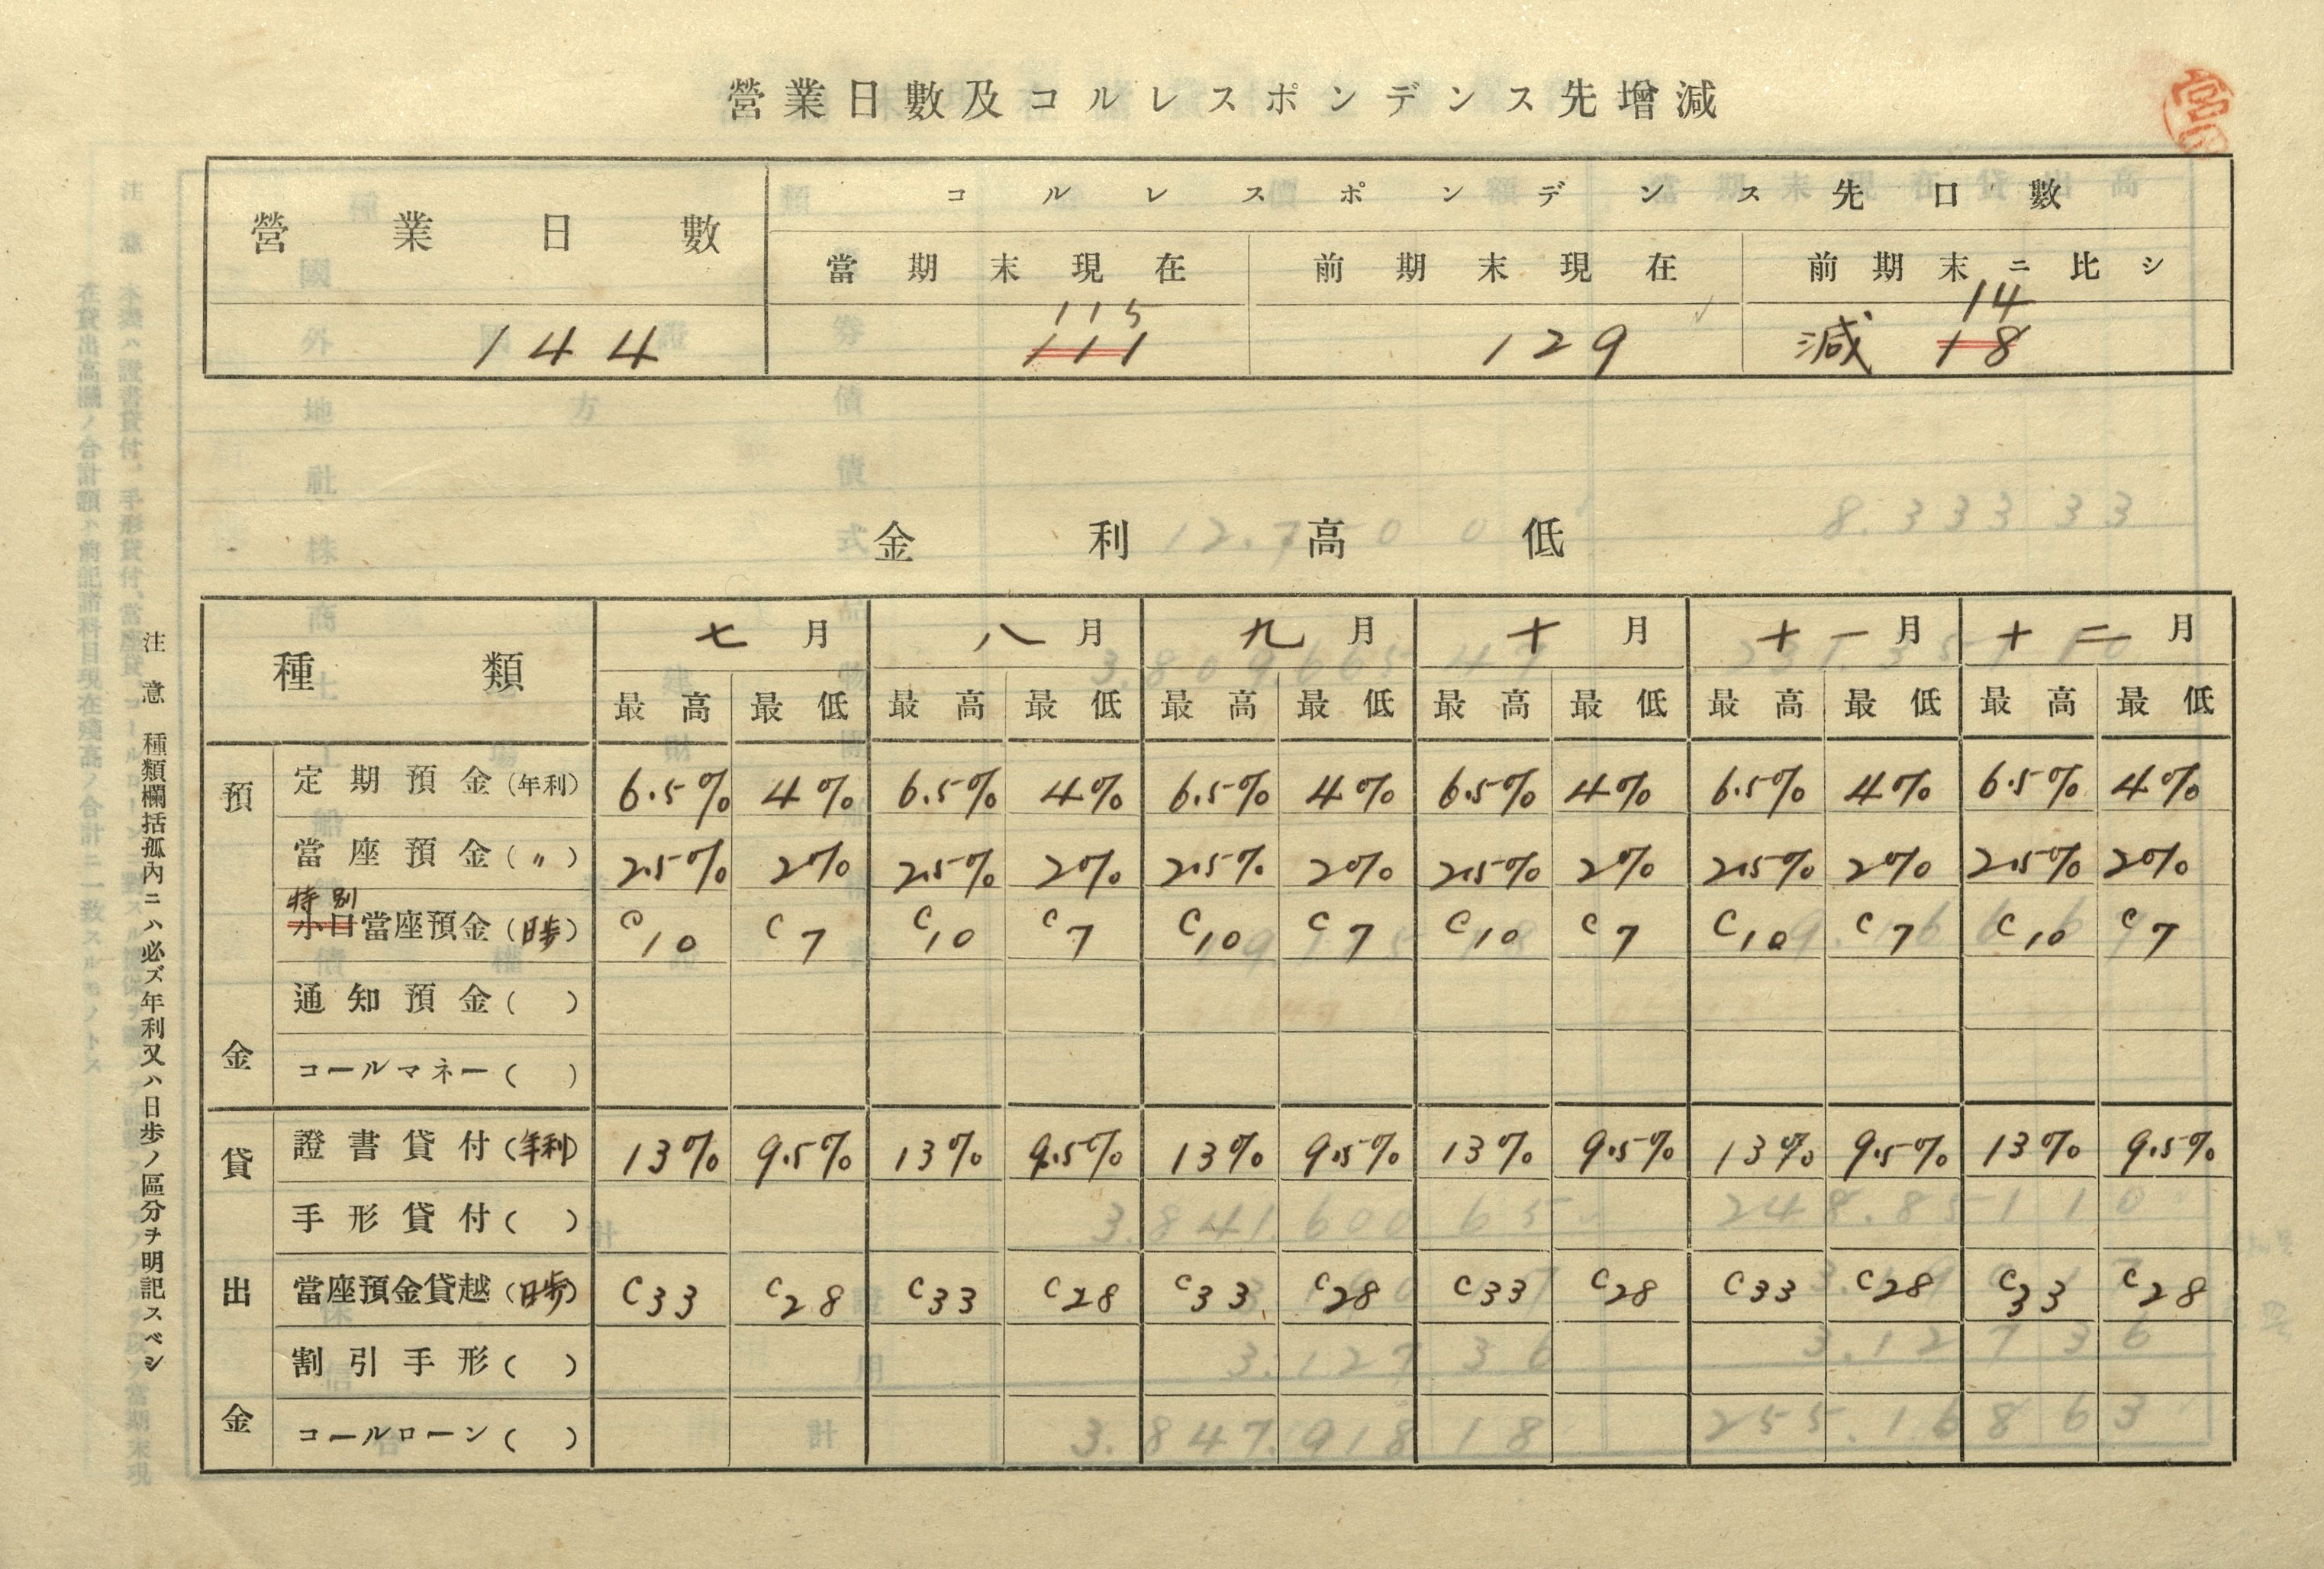 營業日數及コルレスポンデンス先增減
營業日數 コルレスポンデンス先口數
當期末現在 前期末現在 前期末ニ比シ
115 14
144 111 129 減 18
金利高低
種類 七月 八月 九月 十月 十一月 十二月
最高 最低 最高 最低 最高 最低 最高 最低 最高 最低 最高 最低
預金
定期預金(年利) 6.5% 4% 6.5% 4% 6.5% 4% 6.5% 4% 6.5% 4% 6.5% 4%
當座預金(〃) 2.5% 2% 2.5% 2% 2.5% 2% 2.5% 2% 2.5% 2% 2.5% 2%
特別
小口當座預金(日歩) C10 C7 C10 C7 C10 C7 C10 C7 C10 C7 C10 C7
通知預金( )
コールマネー( )
貸出金
證書貸付(年利) 13% 9.5% 13% 9.5% 13% 9.5% 13% 9.5% 13% 9.5% 13% 9.5%
手形貸付( )
當座預金貸越(日歩) C33 C28 C33 C28 C33 C28 C33 C28 C33 C28 C33 C28
割引手形( )
コールローン( )
注意 種類欄括孤內ニハ必ズ年利又ハ日步ノ區分ヲ明記スベシ